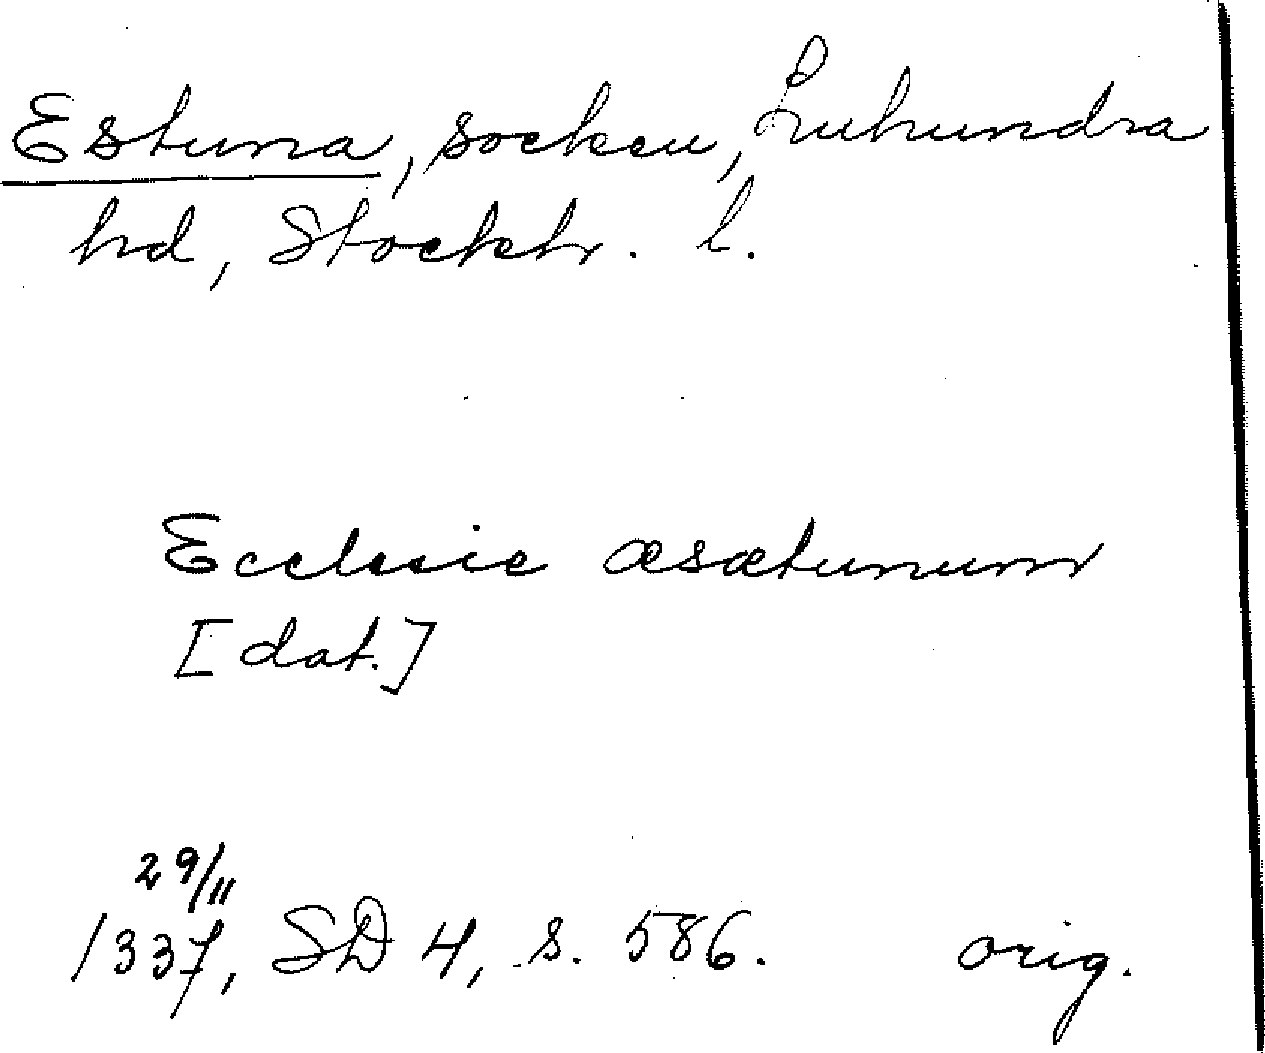 Estuna, socken, Lyhundra
hd, Stockh. l.
Ecclesie æsætunum
[dat.]
29/11
1337, SD 4, s. 586. orig.